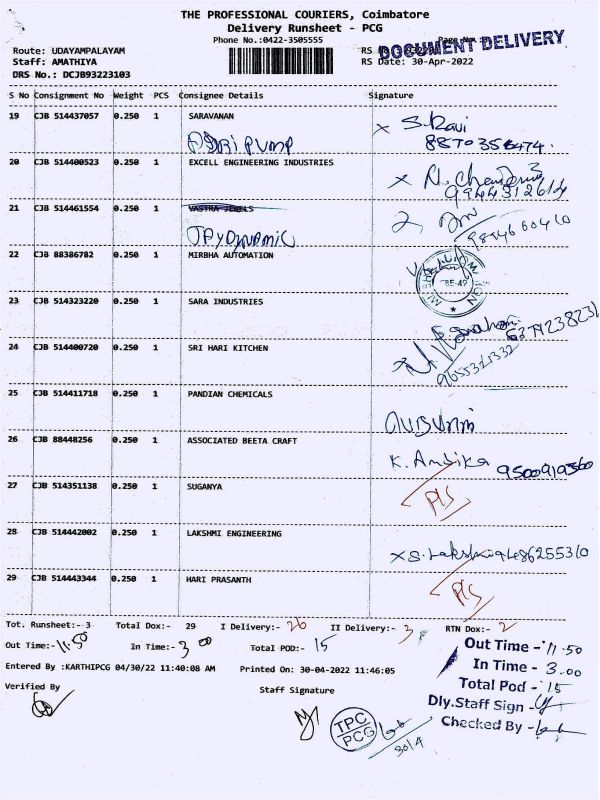 THE PROFESSIONAL COURIERS, Coimbatore
Delivery Runsheet - PCG
Phone No.:0422-3505555
DOCUMENT DELIVERY
Route: UDAYAMPALAYAM
Staff: AMATHIYA
RS Date: 30-Apr-2022
DRS No.: DCJB93223103
S No Consignment No Weight PCS Consignee Details Signature
19 CJB 514437057 0.250 1 SARAVANAN
S. Ravi
20 CJB 514400523 0.250 1 EXCELL ENGINEERING INDUSTRIES
21 CJB 514461554 0.250 1 VASTRA JEWELS
22 CJB 88386782 0.250 1 MIRBHA AUTOMATION
23 CJB 514323220 0.250 1 SARA INDUSTRIES
24 CJB 514400720 0.250 1 SRI HARI KITCHEN
9655321332
25 CJB 514411718 0.250 1 PANDIAN CHEMICALS
26 CJB 88448256 0.250 1 ASSOCIATED BEETA CRAFT
K. Ambika 9500919360
27 CJB 514351138 0.250 1 SUGANYA
28 CJB 514442002 0.250 1 LAKSHMI ENGINEERING
29 CJB 514443344 0.250 1 HARI PRASANTH
Tot. Runsheet:- 3 Total Dox:- 29 I Delivery:- 26 II Delivery:- 3 RTN Dox:- 2
Out Time:- 11.50 In Time:- 3 00 Total POD:- 15
Out Time - 11.50
In Time - 3.00
Total Pod - 15
Dly.Staff Sign -
Checked By -
Entered By :KARTHIPCG 04/30/22 11:40:08 AM Printed On: 30-04-2022 11:46:05
Verified By
Staff Signature
TPC
PCG
30/4